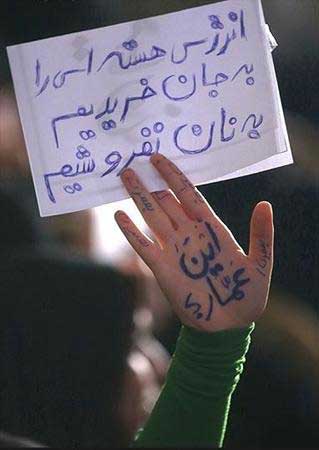 انرژی هسته ای را
به جان خریدیم
به نان نفروشیم
این
عمار؟